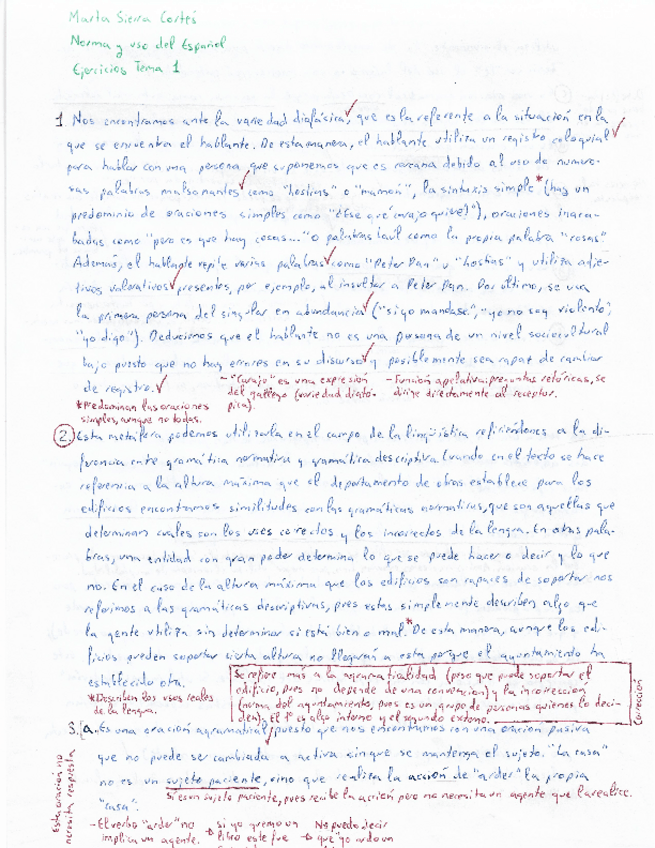 Marta Sierra Cortés
Norma y uso del Español
Ejercicios Tema 1
1 Nos encontramos ante la variedad diafásica, que es la referente a la situación en la
que se encuentra el hablante. De esta manera, el hablante utiliza un registro coloquial
para hablar con una persona que suponemos que es cercana debido al uso de nume-
sas palabras malsonantes como "hostias" o "mamón", la sintaxis simple* (hay un
predominio de oraciones simples como "¿Ese qué carajo quiere?"), oraciones inaca-
badas como "pero es que hay cosas..." o palabras baúl como la propia palabra "cosas"
Además, el hablante repite varias palabras como "Peter Pan" u "hostias" y utiliza adje-
tivos valorativos presentes, por ejemplo, al insultar a Peter Pan. Por último, se usa
la primera persona del singular en abundancia ("sigo mandase", "yo no soy violento",
"yo digo"). Deducimos que el hablante no es una persona de un nivel sociocultural
bajo puesto que no hay errores en su discurso y posiblemente sea capaz de cambiar
de registro.
- "Carajo" es una expresión del gallego (variedad diató-
pica).
- Función apelativa: preguntas retóricas, se
dirige directamente al receptor.
*Predominan las oraciones
simples, aunque no todas.
2. Esta metáfora podemos utilizarla en el campo de la lingüística refiriéndonos a la di-
ferencia entre gramática normativa y gramática descriptiva. Cuando en el texto se hace
referencia a la altura máxima que el departamento de obras establece para los
edificios encontramos similitudes con las gramáticas normativas, que son aquellas que
determinan cuales son los usos correctos y los incorrectos de la lengua. En otras pala-
bras, una entidad con gran poder determina lo que se puede hacer o decir y lo que
no. En el caso de la altura máxima que los edificios son capaces de soportar nos
referimos a las gramáticas descriptivas, pues estas simplemente describen algo que
la gente utiliza sin determinar si está bien o mal.* De esta manera, aunque los edi-
ficios pueden soportar cierta altura no llegarán a esta porque el ayuntamiento ha
establecido otra.
*Describen los usos reales
de la lengua.
Se refiere más a la agramaticalidad (peso que puede soportar el
edificio, pues no depende de una convención) y la incorrección
(norma del ayuntamiento, pues es un grupo de personas quienes lo deci-
den). El 1º es algo interno y el segundo externo.
Corrección
3. a. Es una oración agramatical, puesto que nos encontramos con una oración pasiva
que no puede ser cambiada a activa sin que se mantenga el sujeto. "La casa"
no es un sujeto paciente, sino que realiza la acción de "arder" la propia
"casa".
sí es un sujeto paciente, pues recibe la acción pero no necesita un agente que la realice.
Esta oración no
necesita respuesta
- El verbo "arder" no
implica un agente.
→ si yo quemo un
libro este fue
No puedo decir
→ que yo ardo un